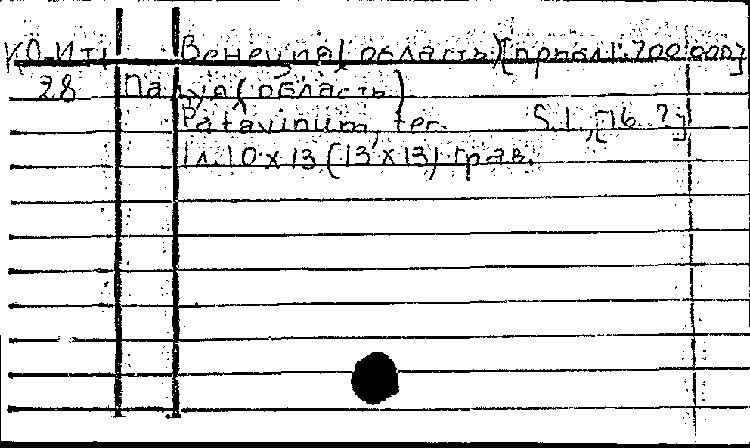 КО-ИТ1 Венеция (область) [прибл 1:700 000]
28 Падуя (область)
Patavinum, ter. S.l., [16..?]
1 л. 10 x 13 (13 x 13) грав.